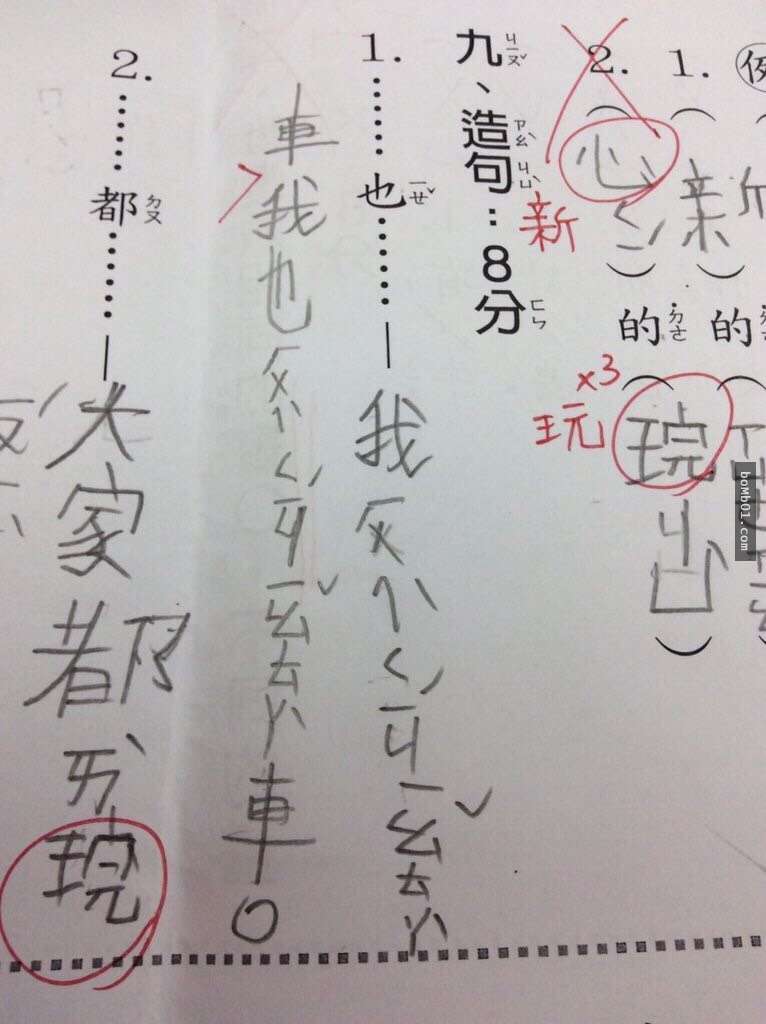 例
1.（
的˙ㄉㄜ（
2.（心
）的˙ㄉㄜ（琓ㄐㄩˋ）
新
玩x3
九ㄐㄧㄡˇ、造ㄗㄠˋ句ㄐㄩˋ：8分ㄈㄣ
1.……也ㄧㄝˇ……—我ㄏㄨㄟˋㄑㄧˊㄐㄧㄠˇㄊㄚˋ
車我也ㄏㄨㄟˋㄑㄧˊㄐㄧㄠˇㄊㄚˋ車。
2.……都ㄉㄡ……—大家都ㄞˋ琓
boMb01.com